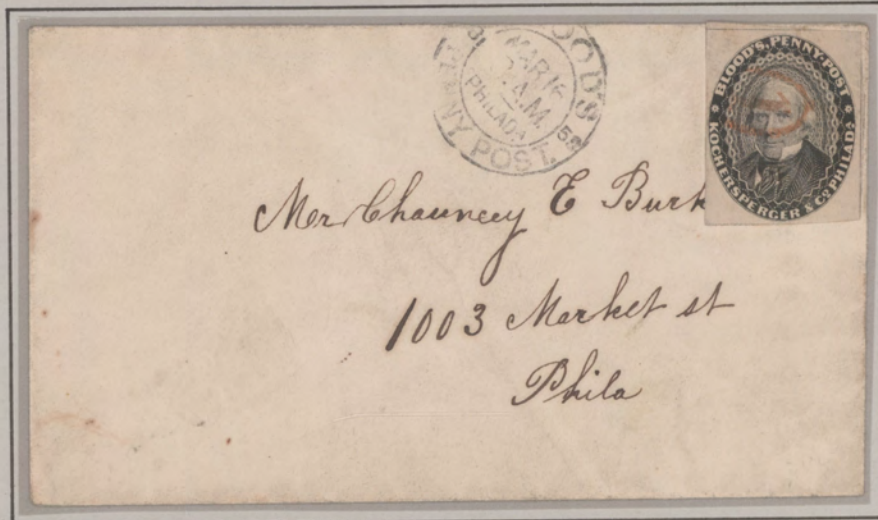 BLOOD'S
PENNY POST.
MAR 16
A.M.
PHILADA
58
BLOOD'S, PENNY-POST
KOCHERSPERGER & Co. PHILADA.
Mr Chauncey E Burk
1003 Market st
Phila